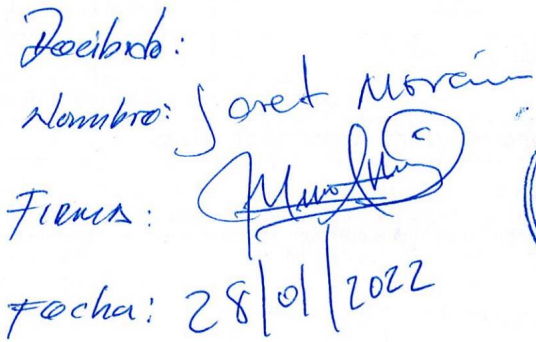 Recibido:
Nombre: Jaret Morán
Firma:
Fecha: 28/01/2022